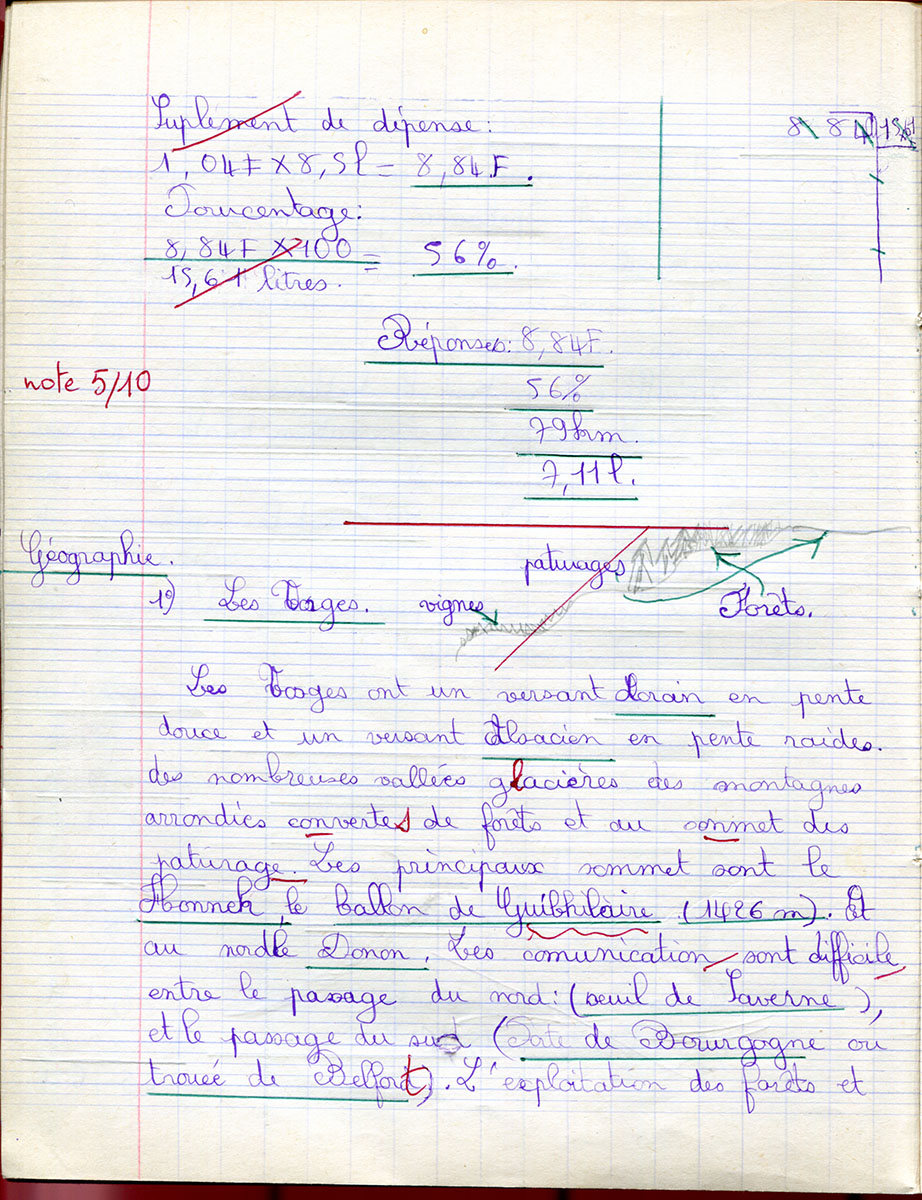 Suplément de dépense:
1,04F X 8,5l = 8,84F.
Pourcentage:
8,84F X 100 = 56%.
15,61 litres.
Réponses: 8,84F.
note 5/10
56%
79km.
7,11l.
Géographie.
paturages
1) Les Vosges. vignes Forêts.
Les Vosges ont un versant Lorain en pente
douce et un versant Alsacien en pente raides.
des nombreuses vallées glacières des montagnes
arrondies convertes de forêts et au sommet des
paturage. Les principaux sommet sont le
Honneck, le ballon de Guibhilaire (1426 m). Et
au nord le Donon. Les comunication sont difficile
entre le passage du nord: (seuil de Saverne),
et le passage du sud (Porte de Bourgogne ou
trouée de Belfort). L'exploitation des forêts et